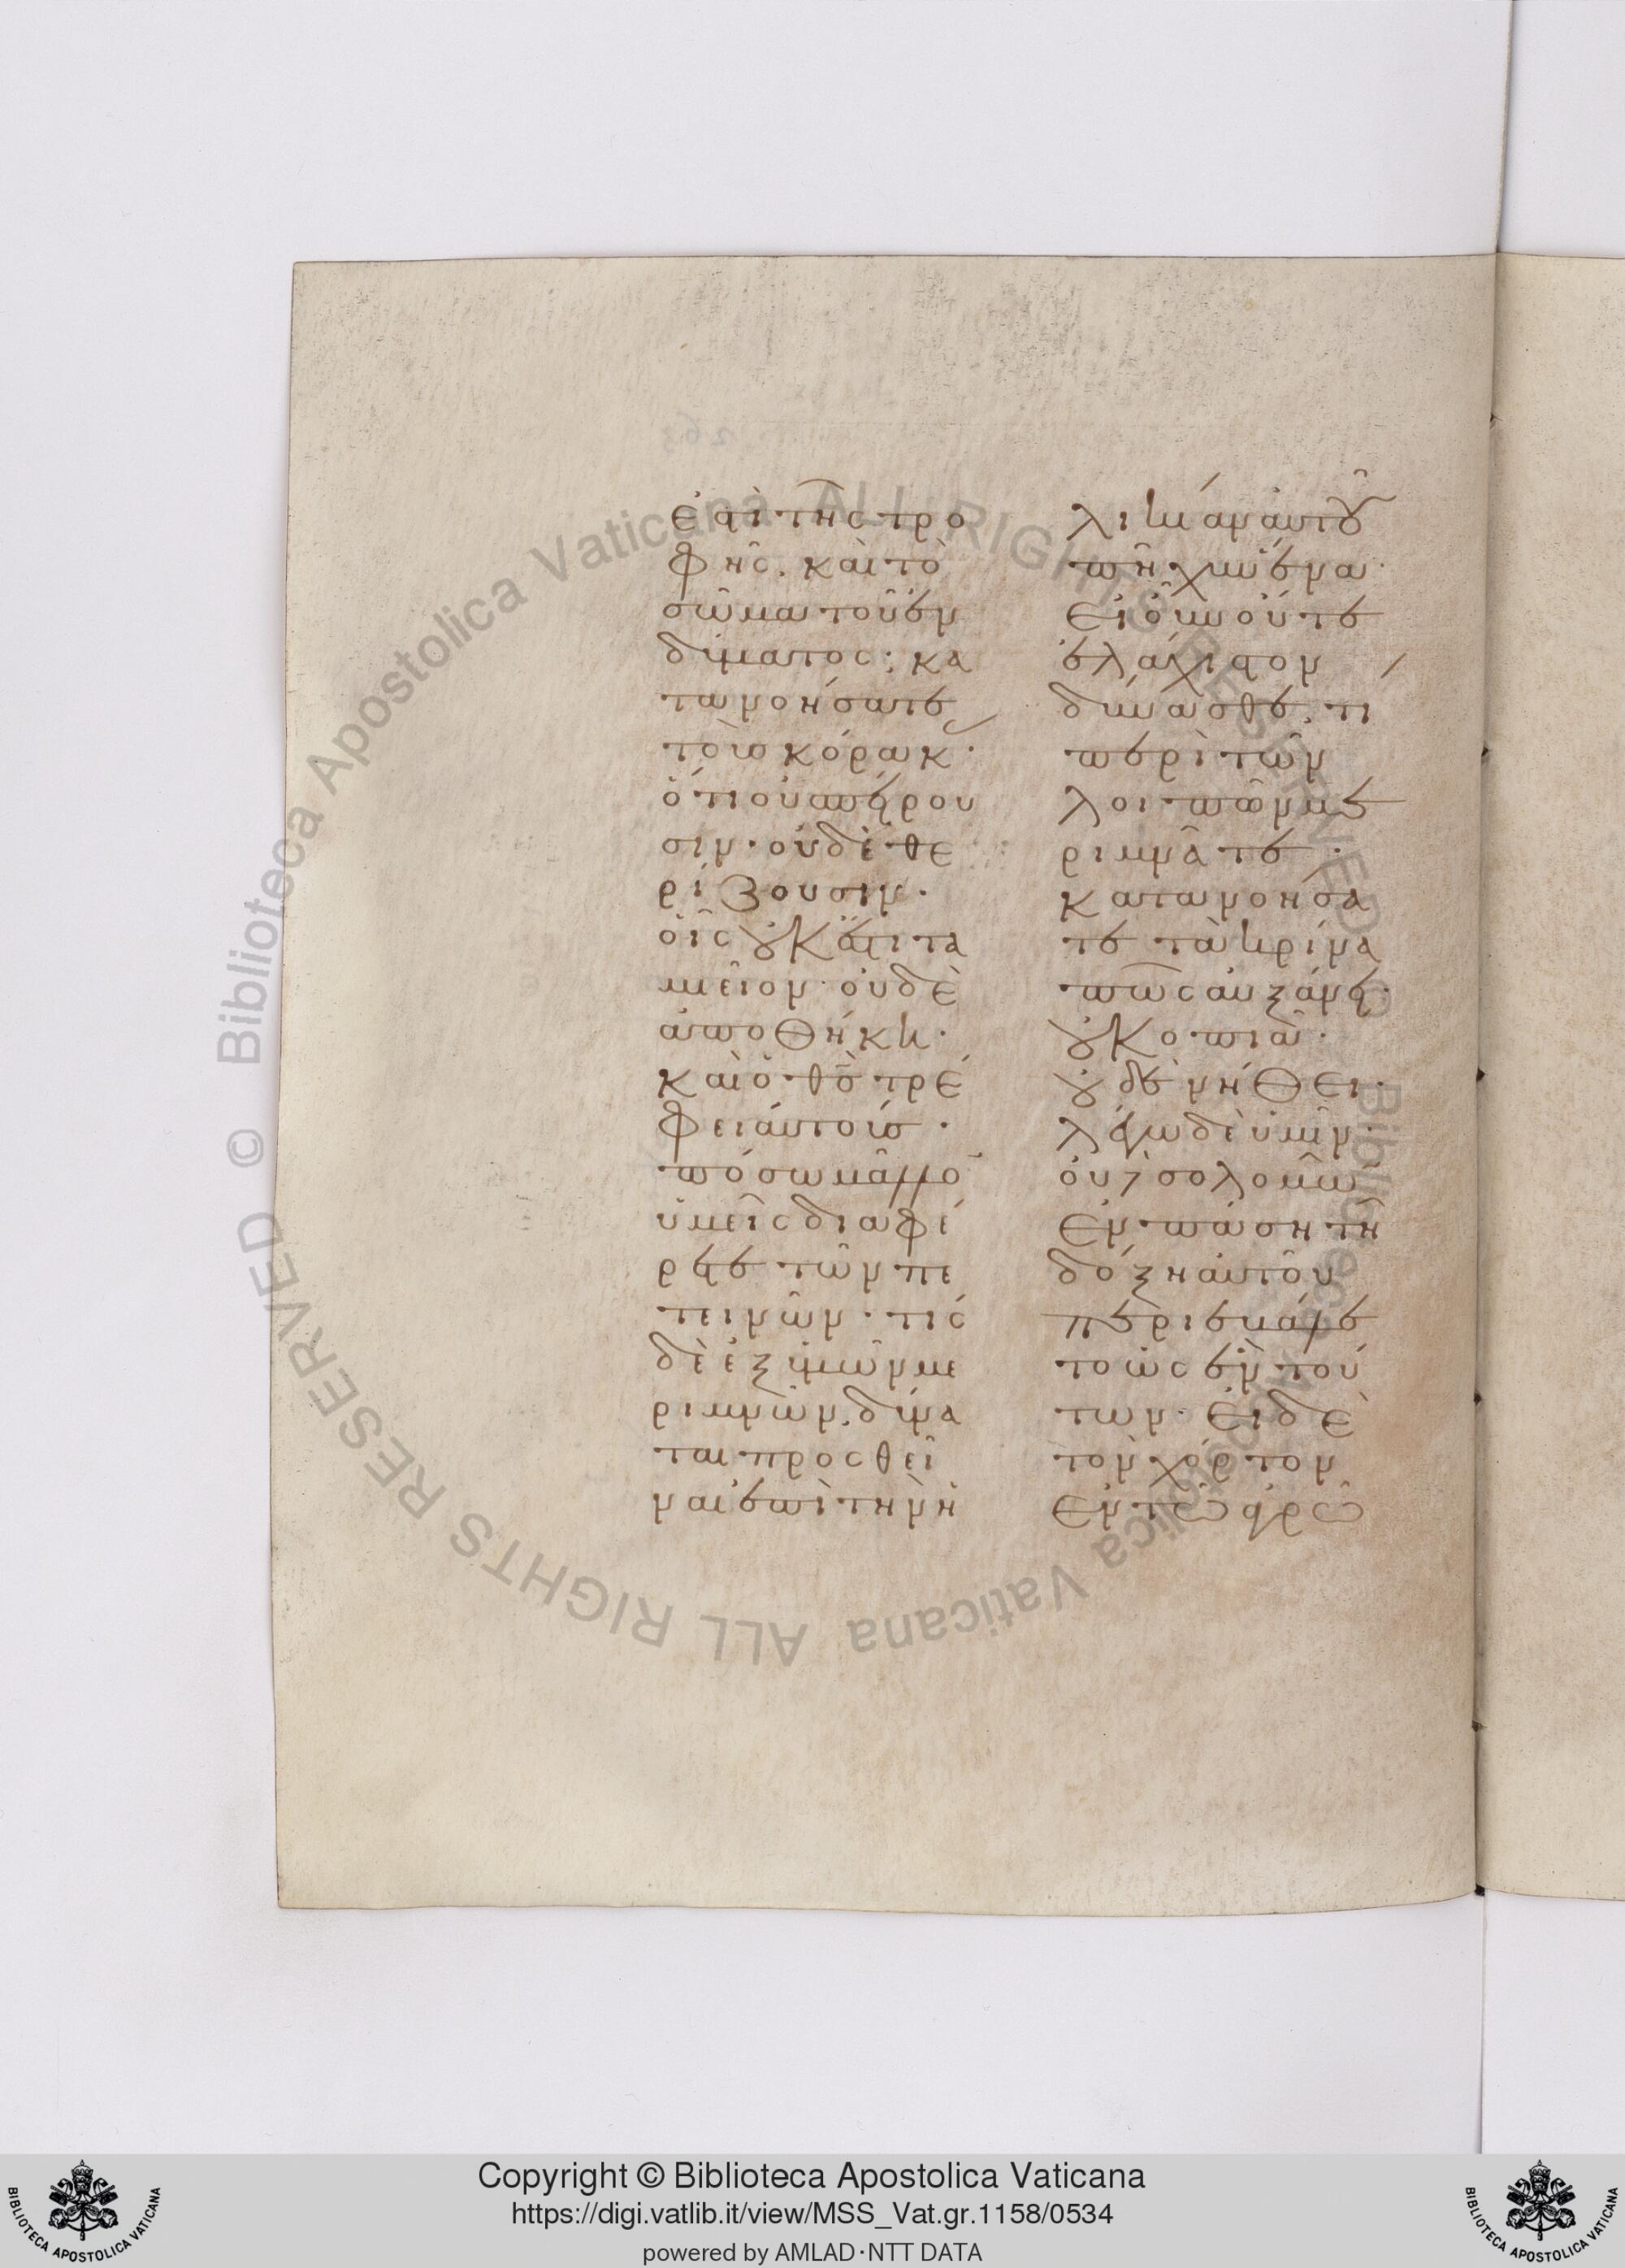 ἐστὶ τῆς τρο
φῆς. καὶ τὸ
σῶμα τοῦ ἐν
δύματος· κα
τανοήσατε
τοὺς κόρακ·
ὅτι οὐ σπείρου
σιν· οὐδὲ θε
ρίζουσιν·
οἷς οὐκ ἔστι τα
μεῖον· οὐδὲ
ἀποθήκη·
καὶ ὁ θς τρέ
φει αὐτούς·
πόσω μᾶλλο
ὑμεῖς διαφέ
ρετε τῶν πε
τεινῶν· τίς
δὲ ἐξ ὑμῶν με
ριμνῶν· δύνα
ται προσθεῖ
ναι ἐπὶ τὴν ἡ
λικίαν αὐτοῦ
πῆχυν ἕνα·
εἰ οὖν οὔτε
ἐλάχιστον
δύνασθε· τί
περὶ τῶν
λοιπῶν με
ριμνᾶτε·
κατανοήσα
τε τὰ κρίνα
πῶς αὐξάνει·
οὐ κοπιᾶ·
οὐδὲ νήθει·
λέγω δὲ ὑμῖν·
οὐδὲ σολομῶ
ἐν πάση τῆ
δόξη αὐτοῦ
περιεβάλε
το ὡς ἓν τού
των· εἰ δὲ
τὸν χόρτον
ἐν τῶ ἀγρῶ
Copyright © Biblioteca Apostolica Vaticana
https://digi.vatlib.it/view/MSS_Vat.gr.1158/0534
powered by AMLAD·NTT DATA
© Biblioteca Apostolica Vaticana ALL RIGHTS RESERVED © Biblioteca Apostolica Vaticana ALL RIGHTS RESERVED
BIBLIOTECA APOSTOLICA VATICANA
BIBLIOTECA APOSTOLICA VATICANA